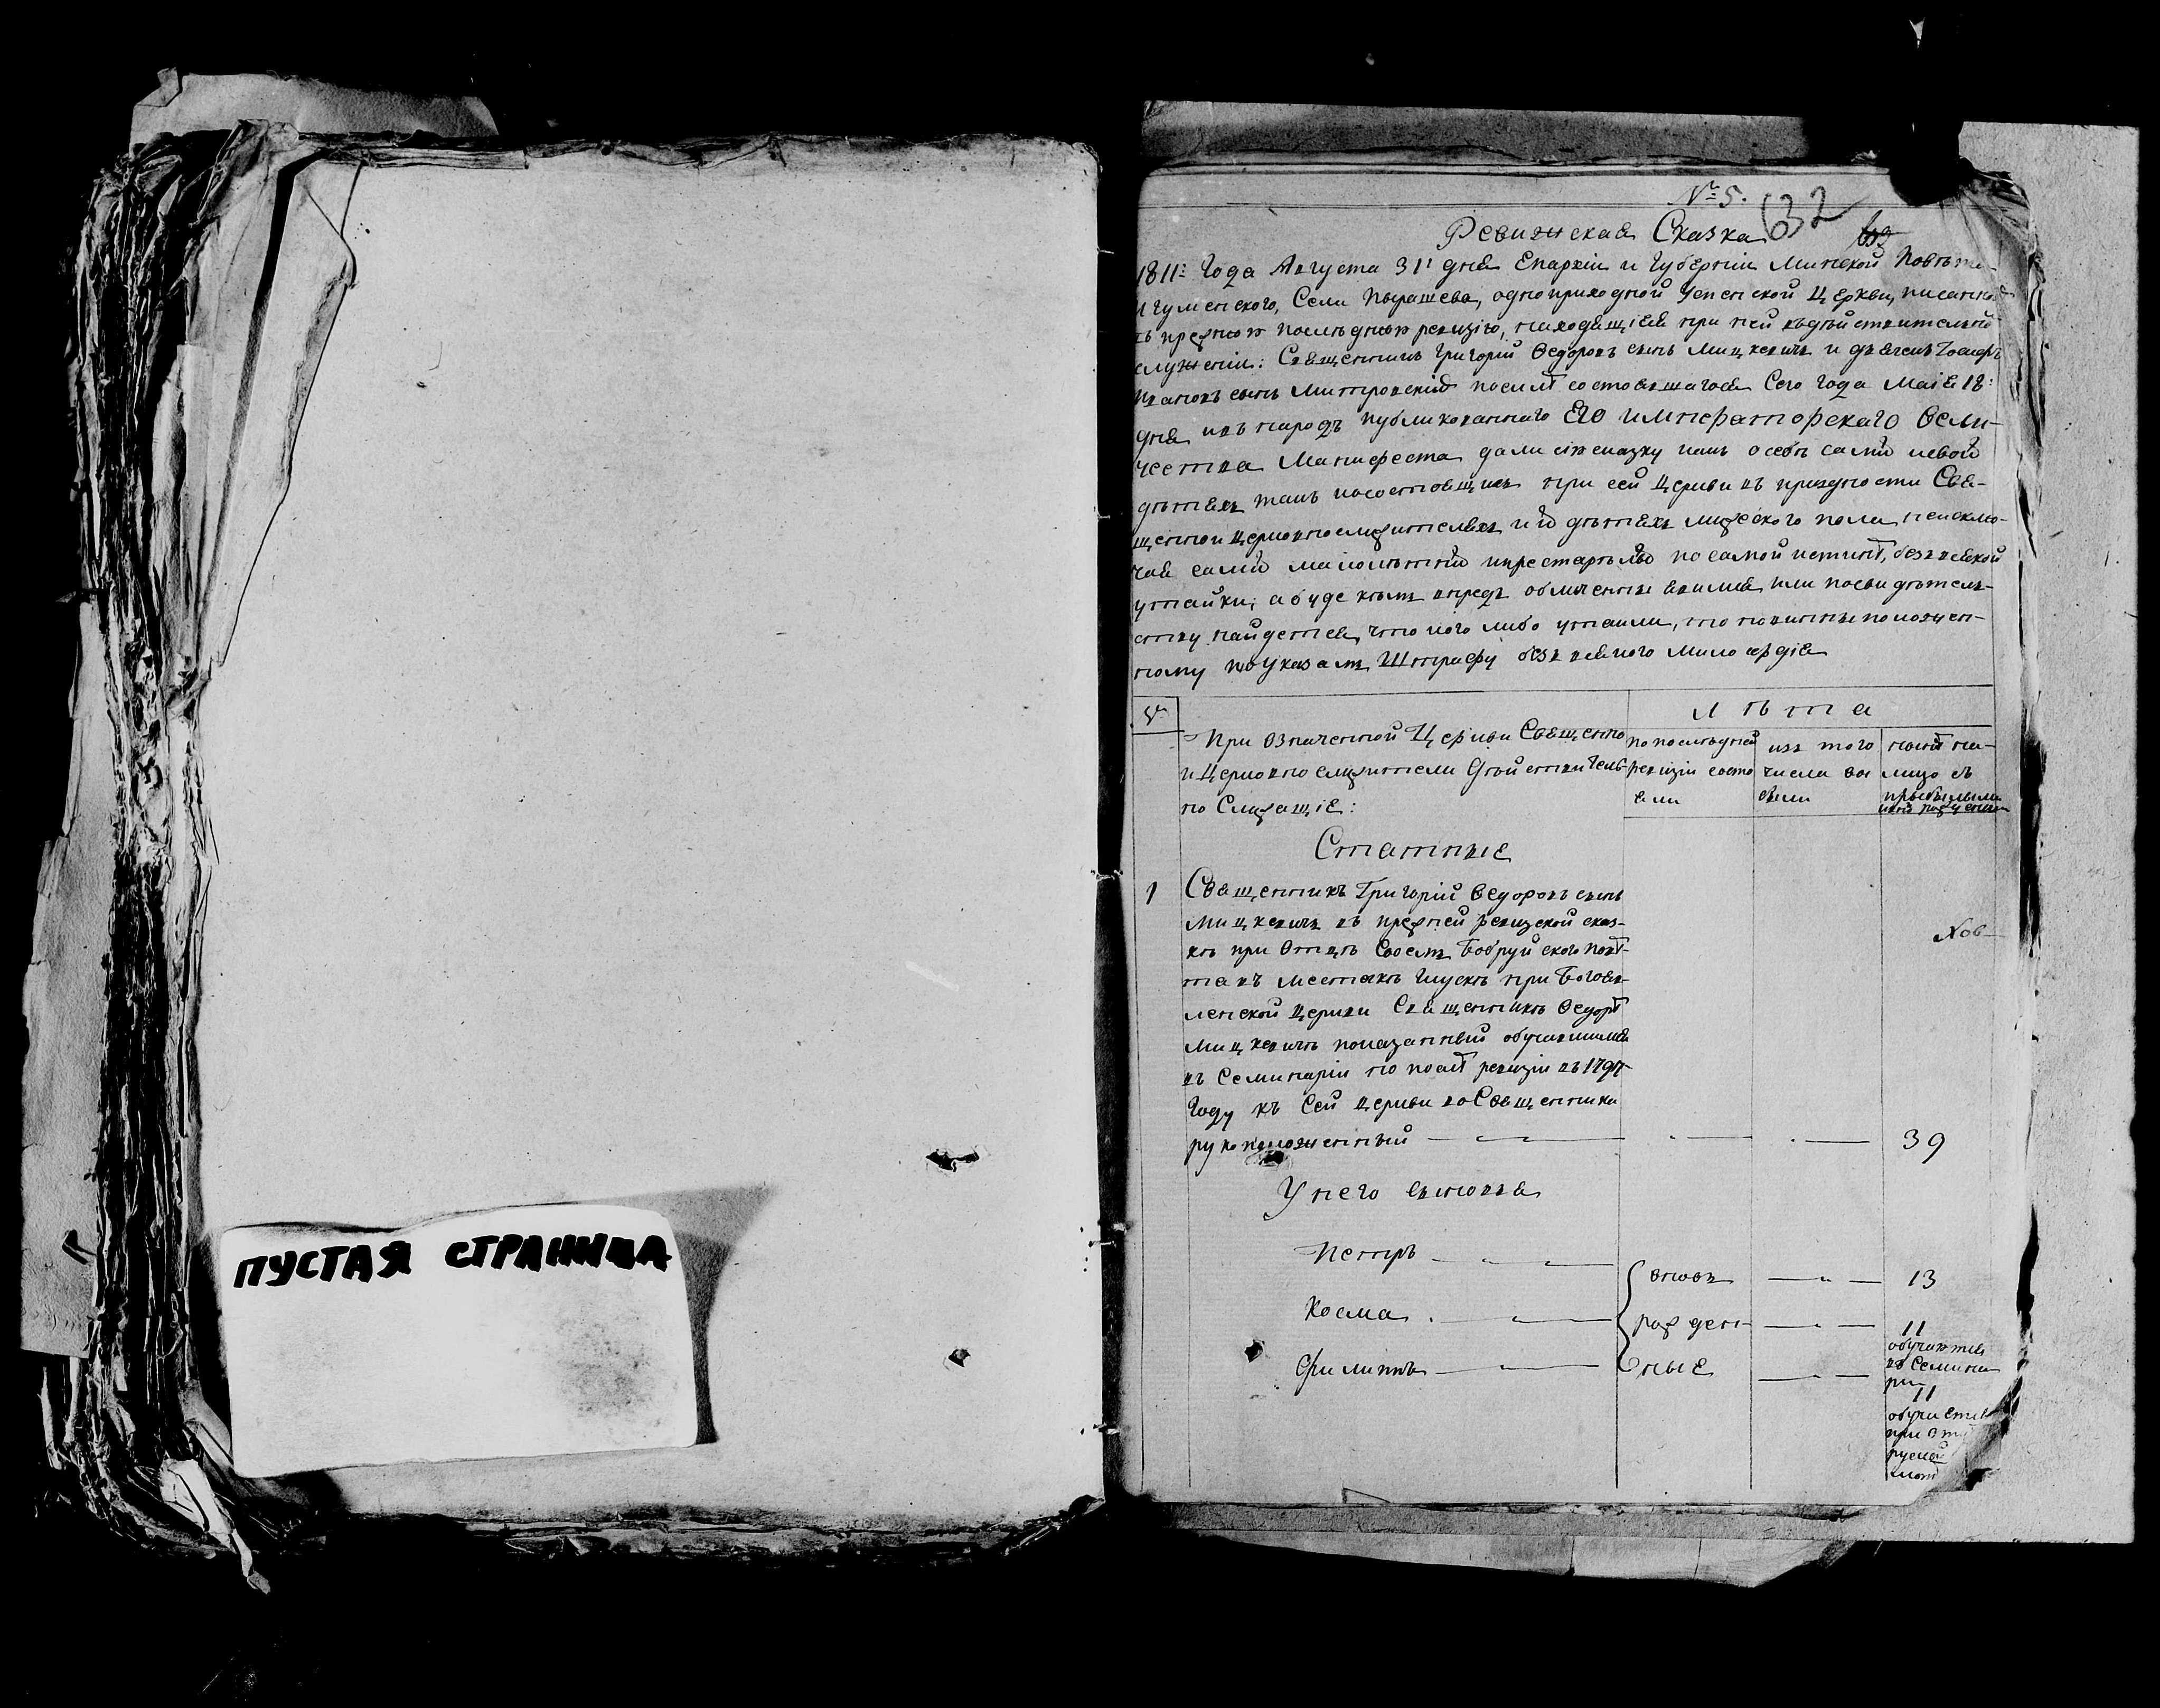 ПУСТАЯ СТРАНИЦА
№ 5.
632
Ревижская Сказка
1811: Года Августа 31: дня Епархіи и Губерніи Минской Повѣта
Игуменского, Села Пырашева, одноприходной Успенской Церкви, писанно
въ прежнюю послѣднюю ревизію, находящіеся при ней въдѣйствительно
служеніи: Священникъ Григорій Ѳедоровъ сынъ Мицкевичъ и дьячекъ Іосифъ
Ивановъ сынъ Митровскій послѣ состоявшагося Сего Года Маія 18:
дня ивъ народъ публикованнаго ЕГО императорскаго Вели-
чества Манифеста дали сію сказку какъ о себѣ самихъ исвоихъ
дѣтяхъ такъ исостоящихъ при сей Церкви въ праздности Свя-
щенно и церковнослужителяхъ и ихъ дѣтяхъ мужеского пола, неисклю-
чая самихъ малолѣтнихъ ипрестарѣлыхъ по самой истинѣ, безъ всякой
утайки; а буде кѣмъ впредь обличенны явимся или посвидѣтель-
ству найдется, что кого либо утаили, то повинны положен-
ному по указамъ Штрафу безъ всякого милосердія
№
При означенной Церкви Священно
и Церковнослужители Дѣйствитель-
но Служащіе:
Лѣта
по послѣдней
ревизіи состо
яли
изъ того
числа вы
были
нынѣ на-
лицо съ
прибылыми
Статные
1
Священникъ Григорій Ѳедоровъ сынъ
Мицкевичъ въ прежней ревизской сказ-
кѣ при Отцѣ Своемъ Бобруйского повѣ-
та въ местечкѣ Глускѣ при Богояв-
ленской церкви Священникѣ Ѳедорѣ
Мицкевичѣ показанный обучавшимся
въ Семинаріи по послѣ ревизіи въ 1797
Году къ Сей церкви воСвященника
рукоположенный
39
У него сыновья
Петръ
Косма
Филиппъ
вновь
рожден-
ные
13
11
обучаются
въ Семина
ріи
11
обучается
при